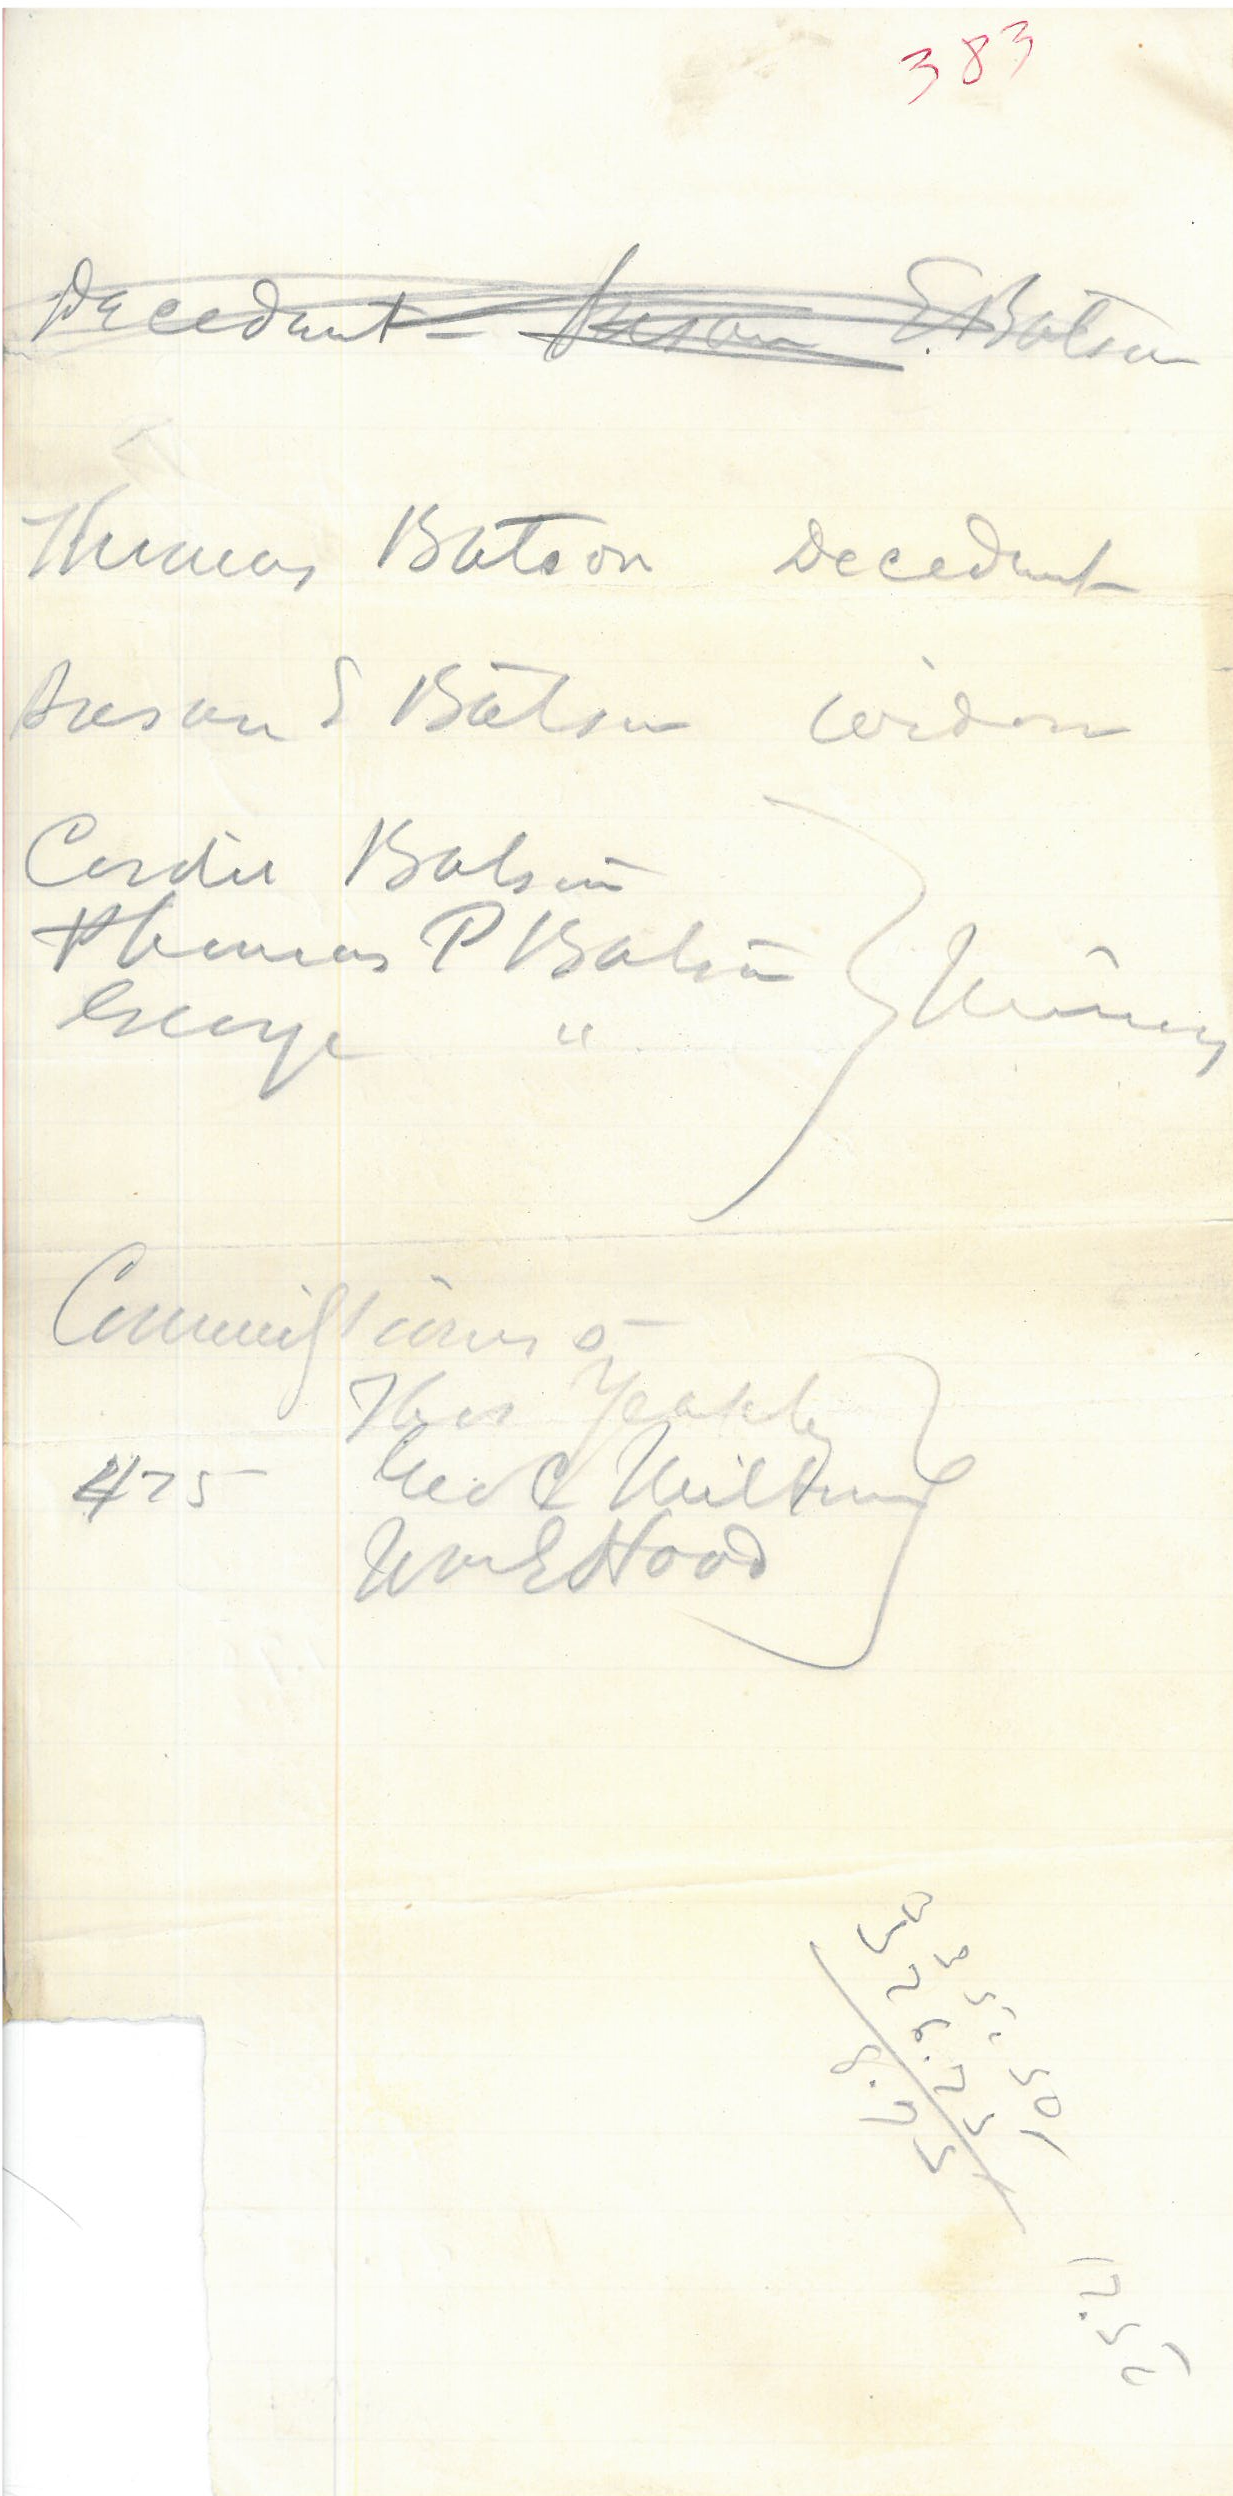 383
Decedent - Susan E. Batson
Thomas Batson Decedent
Susan E Batson widow
Cordie Batson
Thomas P Batson
George " Minors
Commissioners
Thos Yeakle
475 Geo C
Wm E Hood